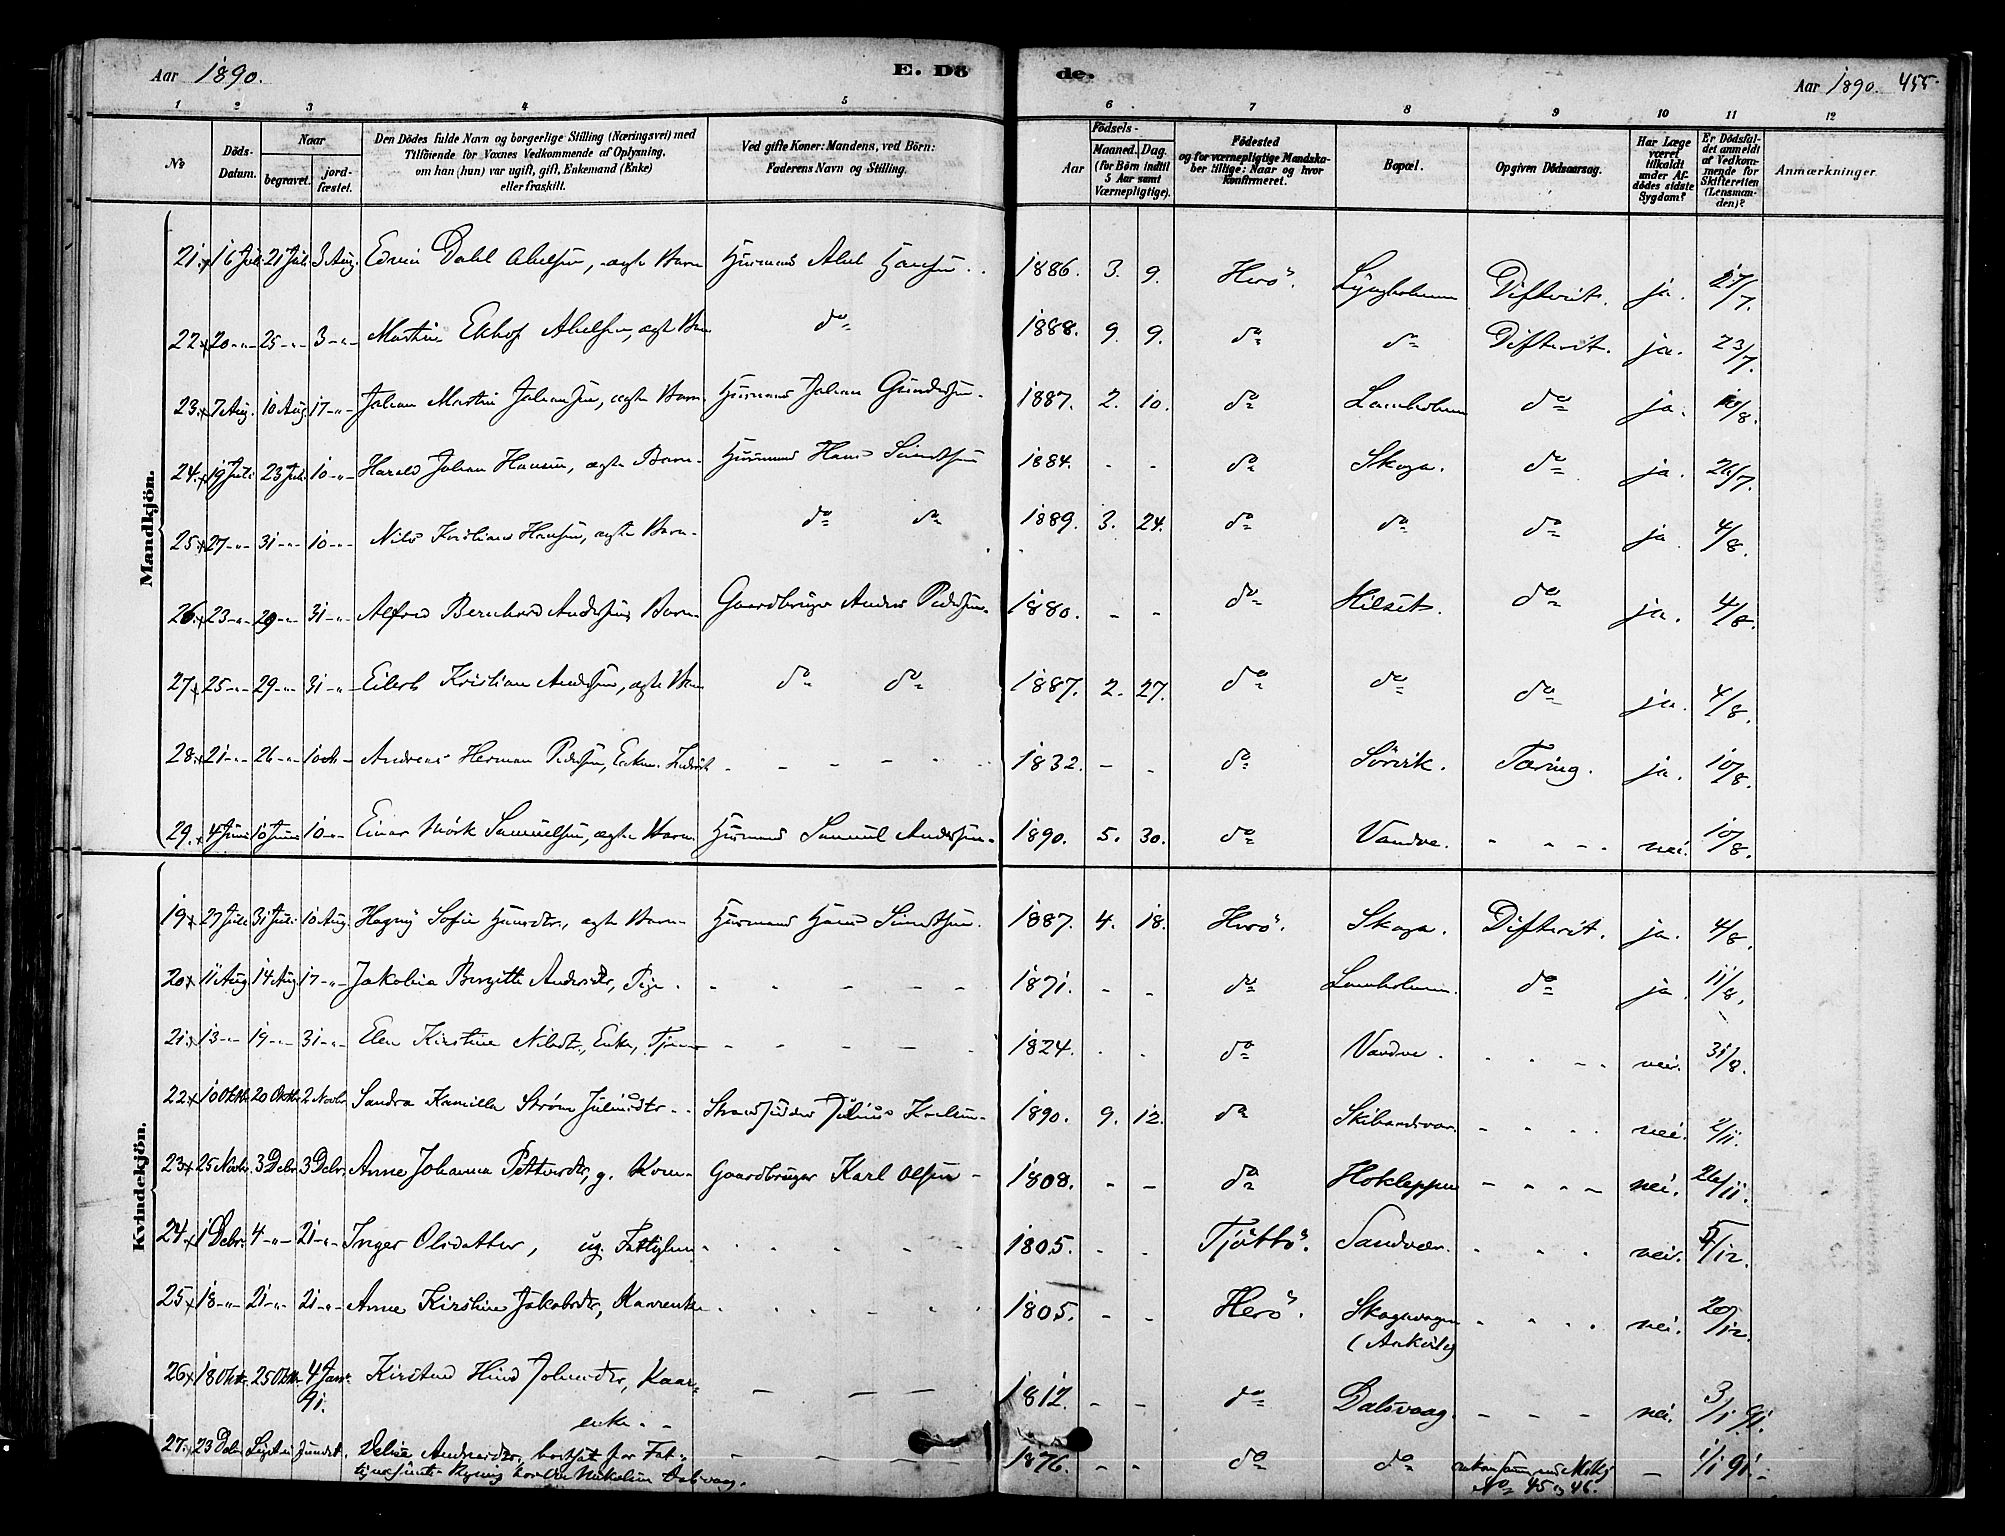 Aar 1890. E. Dö de. Aar 1890. 455.
1 2 3 4 5 6 7 8 9 10 11 12
No
Döds-Datum.
Naar
begravet. jord-fæstet.
Den Dödes fulde Navn og borgerlige Stilling (Næringsvei) med
Tilföiende for Voxnes Vedkommende af Oplysning,
om han (hun) var ugift, gift, Enkemand (Enke)
eller fraskilt.
Ved gifte Koner: Mandens, ved Börn:
Faderens Navn og Stilling.
Födsels-
Aar Maaned. Dag.
(for Börn indtil
5 Aar samt
Værnepligtige).
Födested
og for værnepligtige Mandska-
ber tillige: Naar og hvor
konfirmeret.
Bopæl.
Opgiven Dödsaarsag.
Har Læge
været
tilkaldt
under Af-
dödes sidste
Sygdom?
Er Dödsfal-
det anmeldt
af Vedkom-
mende for
Skifteretten
(Lensman-
den)?
Anmærkninger.
Mandkjön.
21. 16 Juli 21 Juli 3 Aug. Edvin Dahl Abelsen, ægte Barn Husmand Abel Hansen 1886. 3. 9. Herö. Lyngholmen Difterit. ja. 27/7.
22 20 -"- 25 -"- 3 -"- Martin Abelsen, ægte Barn do 1888. 9. 9. do do Difterit. ja. 23/7.
23. 7 Aug. 10 Aug 17 -"- Johan Martin Johansen, ægte Barn Husmand Johan Gundersen. 1887. 2. 10. do do ja. /8.
24. 19 Juli 23 Juli 10 -"- Harald Johan Hansen, ægte Barn Husmand Hans 1884. - - do Skaga. do ja. 26/7.
25. 27 -"- 31 -"- 10 -"- Nils Kristian Hansen, ægte Barn do do 1889. 3. 24. do do do ja 4/8.
26. 23 -"- 29 -"- 31 -"- Alfred Bernhard Andersen, Barn Gaardbruger Anders Pedersen. 1880. - - do Hilset. do ja. 4/8.
27 25 -"- 29 -"- 31 -"- Eilert Kristian Andersen, ægte Barn do do 1887. 2. 27. do do do ja. 4/8.
28. 21 -"- 26 -"- 10 Andreas Herman Pedersen, Enkem. 1832. - - do Sörvik. Tæring. ja. 10/8.
29. 4 Juni 10 Juni 10 -"- Einar Mörk Samuelsen, ægte Barn. Husmand Samuel Andersen. 1890. 5. 30. do Vandve. - - - nei. 10/8.
Kvindekjön.
19 27 Juli 31 Juli 10 Aug. Hagny Sofie Hansdtr., ægte Barn Husmand Hans 1887. 4. 18. Herö. Skaga. Difterit. ja. 4/8.
20 11 Aug 14 Aug 17 -"- Jakobine Bergitte Andersdtr., Pige. 1871. - - do do ja. 11/8.
21. 13 -"- 19 -"- 31 -"- Elen Kirstine Nilsdtr., Enke, 1824. - - do Vandve. - - nei. 31/8.
22 10 Oktbr 20 Oktbr 2 Novbr Sandra Kamilla Ström Juliusdtr. Strandsidder Julius 1890. 9. 12. do - - - nei. 2/11.
23 25 Novbr. 3 Debr. 3 Debr. Anne Johanna Pettersdtr, g. Kone Gaardbruger Karl Olsen 1808. - - do Hokleppen - - - nei. 26/11.
24 1 Debr. 4 -"- 21 -"- Inger Olsdatter, ug. Fattiglem 1805. - - Tjöttö. Sandvær. - - nei. 5/12.
25 18 -"- 21 -"- 21 -"- Anne Kirstine Jakobsdtr, Kaarenke 1805. - - Herö. Skagavaagen - - - nei. 20/12.
26 18 Okt. 25 Oktbr. 4 Jan. 91. Kirsten Hind Johnsdtr, Kaar-
enke - - 1812. - - do Dalsvaag. - - - nei. 3/1 91.
27. 23 Debr. Liget ei fundet. Andreasdtr, bortsat for Fat- 1876. - - do do No 45 & 46. - 1/1 91.
Dalsvaag.